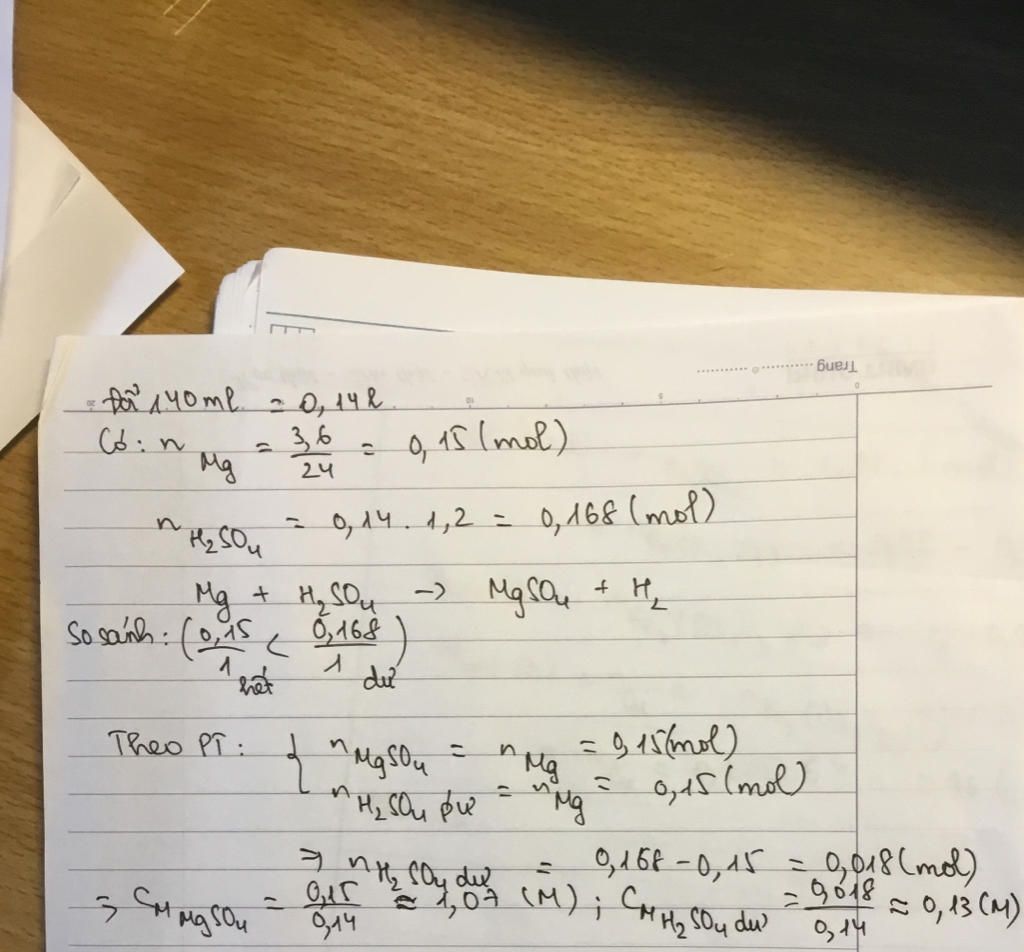 Trang
Đổi 140ml = 0,14l
Có: n Mg = 3,6/24 = 0,15 (mol)
n H₂SO₄ = 0,14 . 1,2 = 0,168 (mol)
Mg + H₂SO₄ → MgSO₄ + H₂
So sánh: (0,15/1 < 0,168/1)
hết dư
Theo PT: { n MgSO₄ = n Mg = 0,15(mol)
n H₂SO₄ pư = n Mg = 0,15 (mol)
⇒ n H₂SO₄ dư = 0,168 - 0,15 = 0,018 (mol)
⇒ C M MgSO₄ = 0,15/0,14 ≈ 1,07 (M) ; C M H₂SO₄ dư = 0,018/0,14 ≈ 0,13 (M)